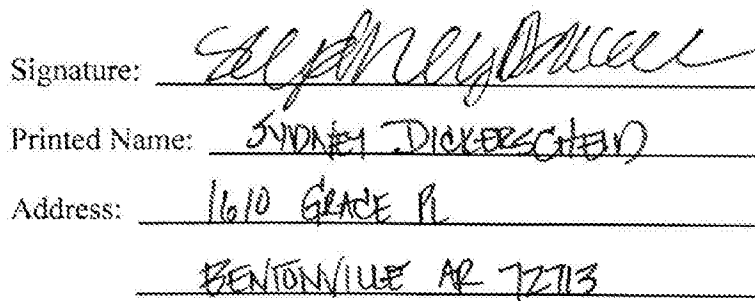 Signature:
Printed Name: SYDNEY DICKERSCHEID
Address: 1610 GRACE PL
BENTONVILLE AR 72713